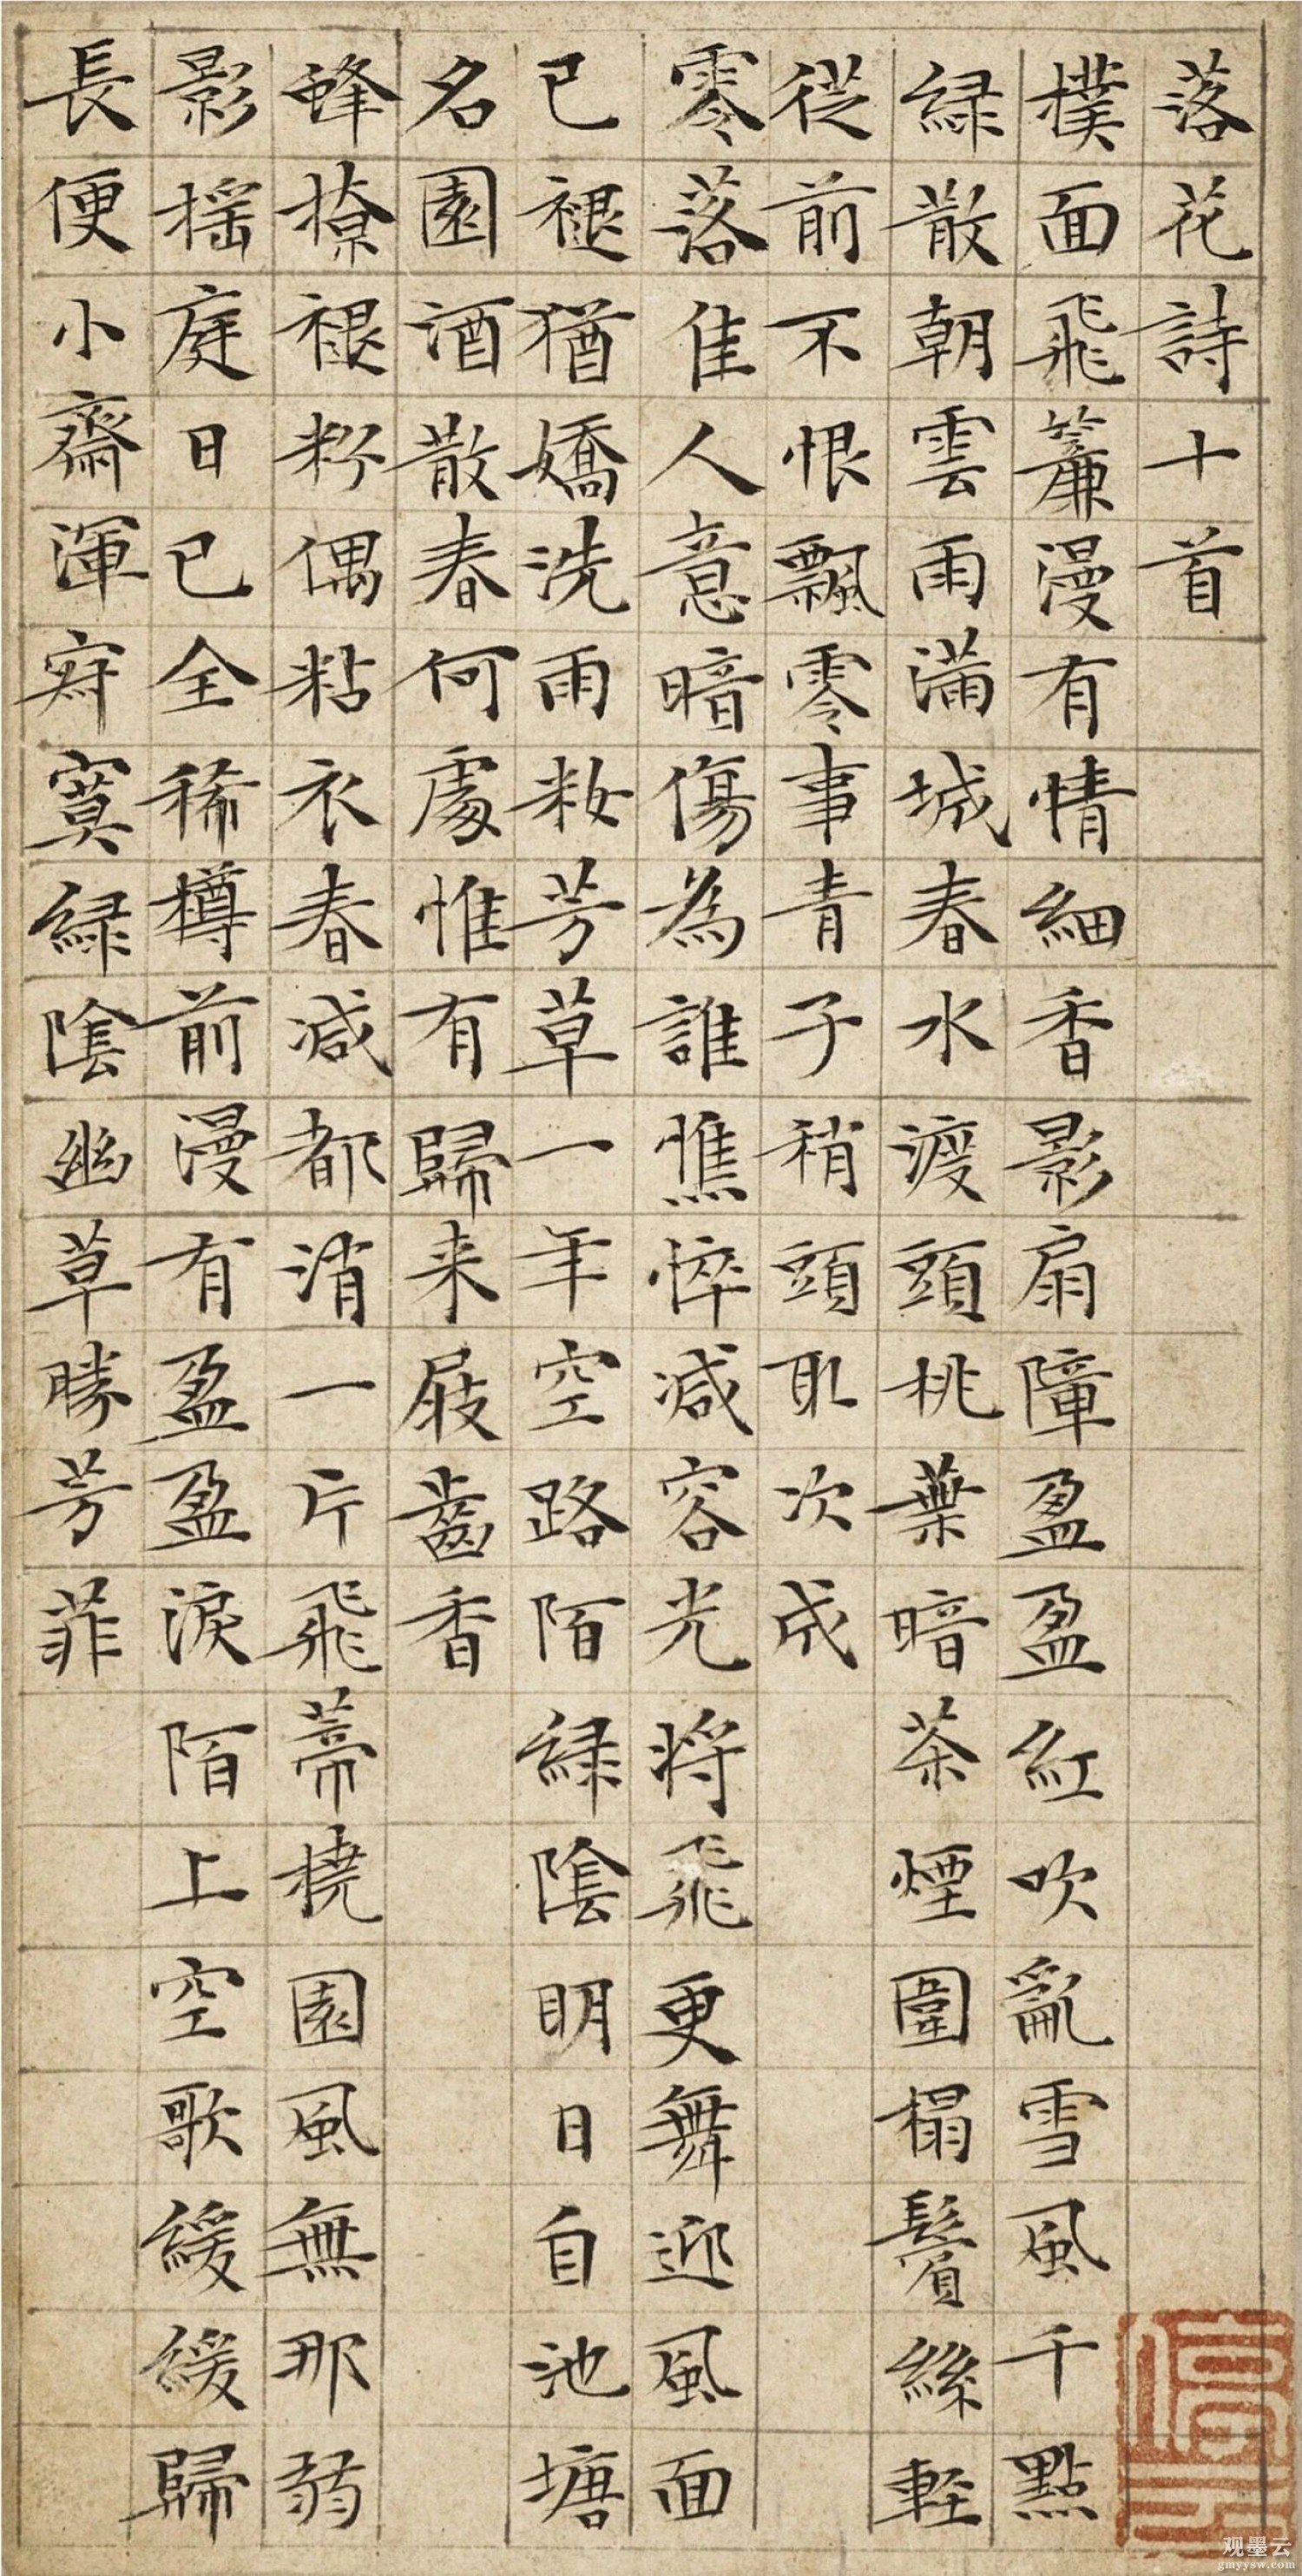 落花詩十首
樸面飛簾漫有情細香影扇障盈盈紅吹亂雪風千點
緑散朝雲雨滿城春水渡頭桃葉暗茶煙圍榻鬢絲輕
從前不恨飄零事青子稍頭取次成
零落佳人意暗傷為誰憔悴減容光將飛更舞迎風面
已褪猶嬌洗雨粧芳草一年空路陌緑陰明日自池塘
名園酒散春何處惟有歸来屐齒香
蜂撩褪粉偶粘衣春減都消一片飛蒂撓園風無那弱
影揺庭日已全稀樽前漫有盈盈淚陌上空歌緩緩歸
長便小齋渾寂寞緑陰幽草勝芳菲
观墨云
gmyysw.com